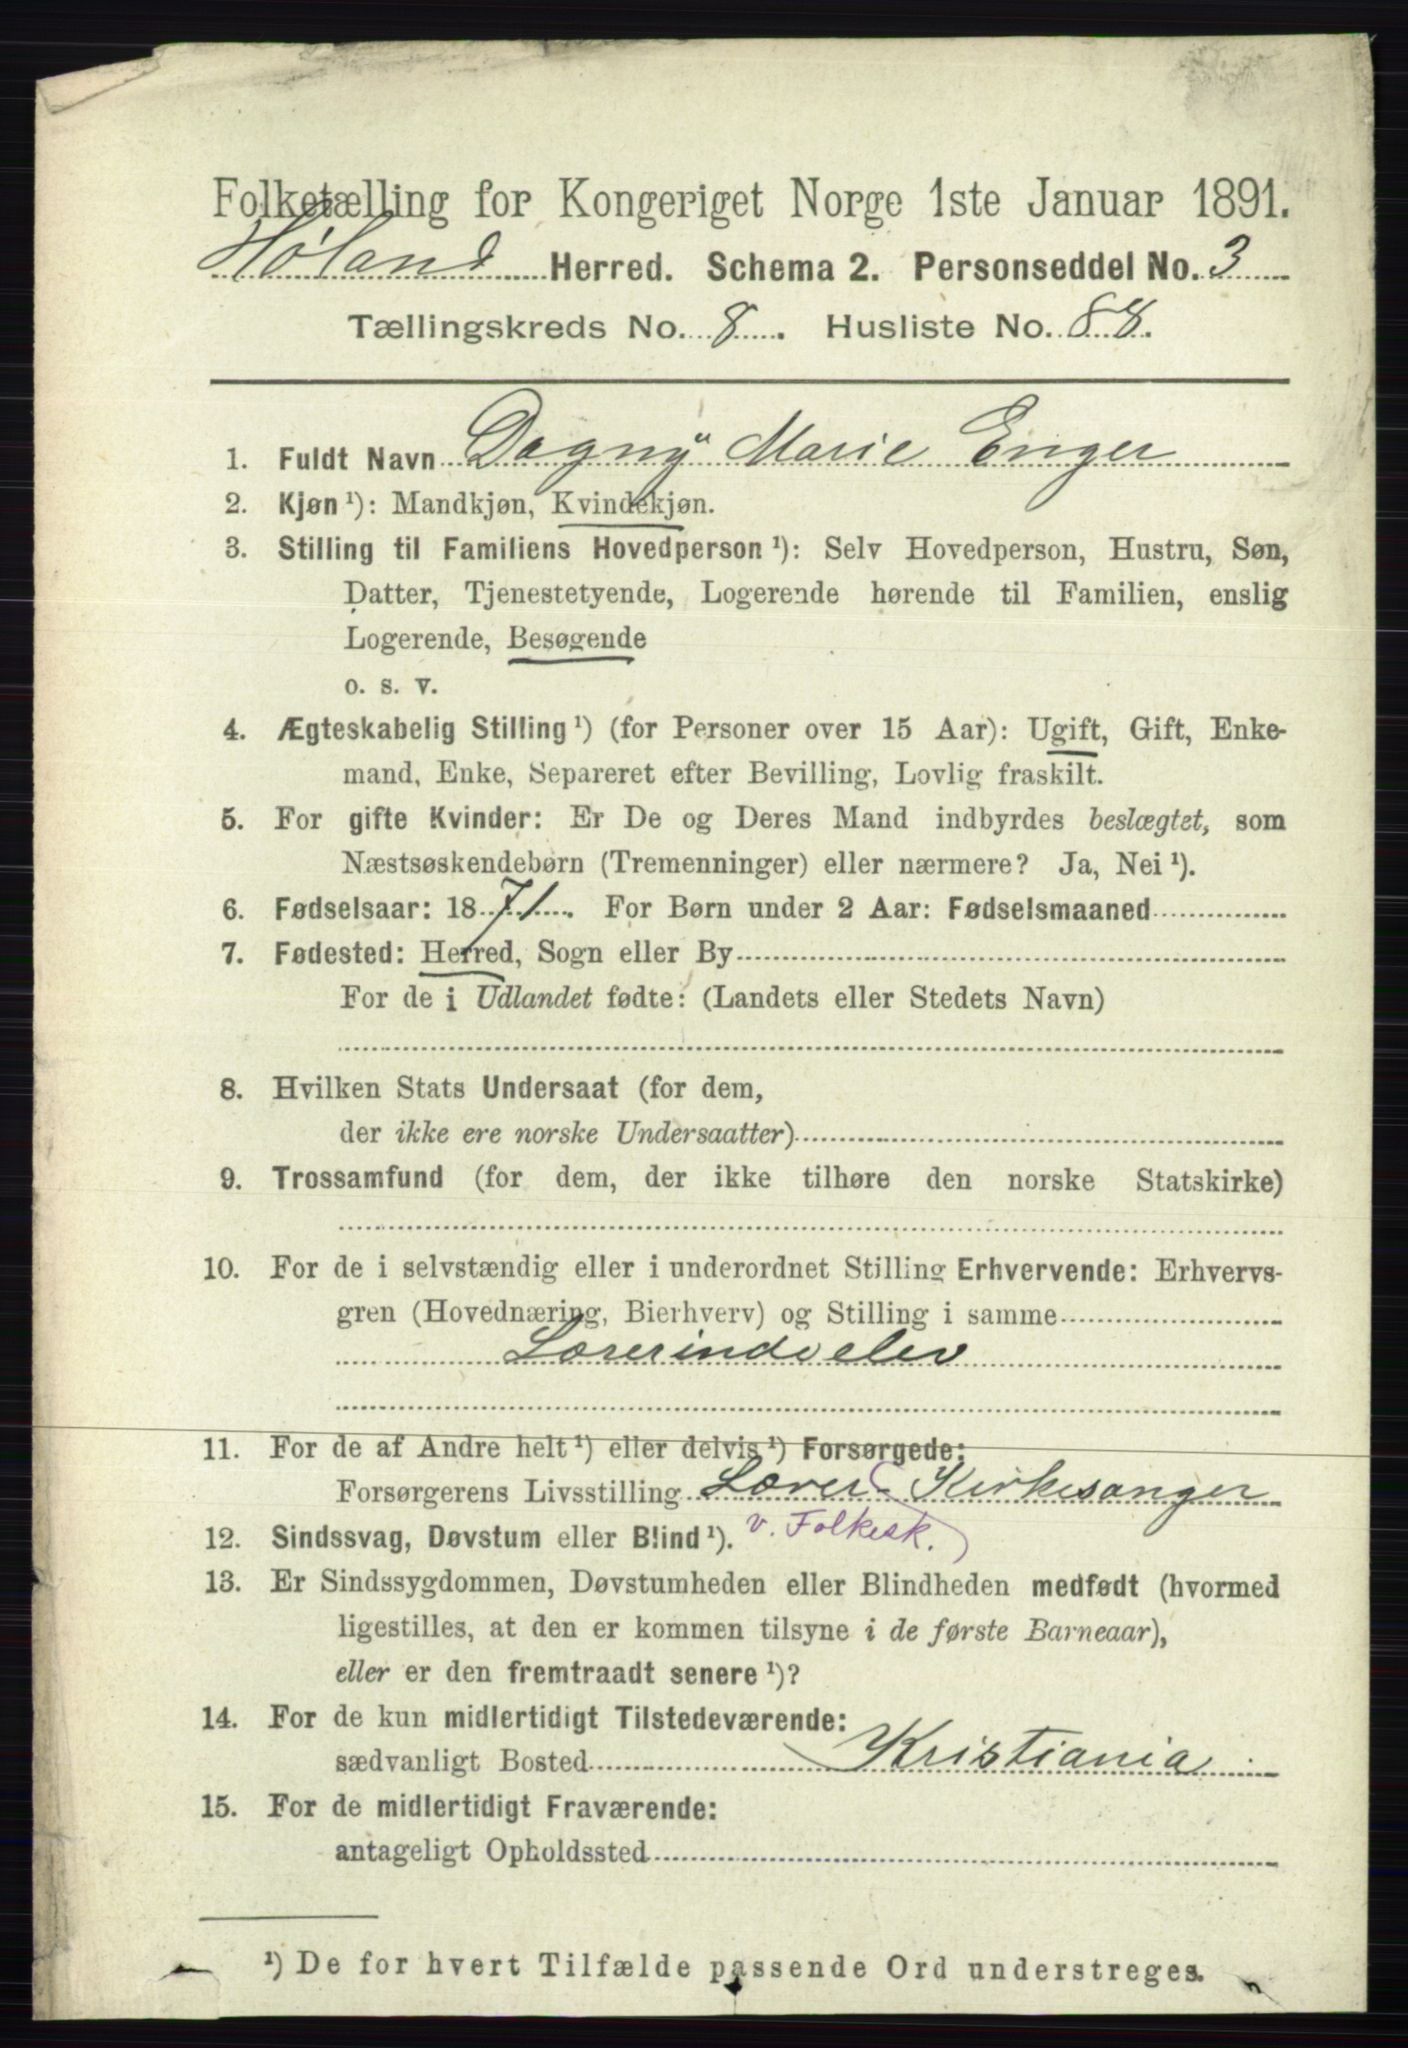 Folketælling for Kongeriget Norge 1ste Januar 1891.
Høland Herred. Schema 2. Personseddel No. 3
Tællingskreds No. 8. Husliste No. 88.
1. Fuldt Navn Dagny Marie Enger
2. Kjøn ¹): Mandkjøn, Kvindekjøn.
3. Stilling til Familiens Hovedperson ¹): Selv Hovedperson, Hustru, Søn,
Datter, Tjenestetyende, Logerende hørende til Familien, enslig
Logerende, Besøgende
o. s. v.
4. Ægteskabelig Stilling ¹) (for Personer over 15 Aar): Ugift, Gift, Enke-
mand, Enke, Separeret efter Bevilling, Lovlig fraskilt.
5. For gifte Kvinder: Er De og Deres Mand indbyrdes beslægtet, som
Næstsøskendebørn (Tremenninger) eller nærmere? Ja, Nei ¹).
6. Fødselsaar: 1871. For Børn under 2 Aar: Fødselsmaaned
7. Fødested: Herred, Sogn eller By
For de i Udlandet fødte: (Landets eller Stedets Navn)
8. Hvilken Stats Undersaat (for dem,
der ikke ere norske Undersaatter)
9. Trossamfund (for dem, der ikke tilhøre den norske Statskirke)
10. For de i selvstændig eller i underordnet Stilling Erhvervende: Erhvervs-
gren (Hovednæring, Bierhverv) og Stilling i samme
Lærerindeelev
11. For de af Andre helt ¹) eller delvis ¹) Forsørgede:
Forsørgerens Livsstilling Lærer- Kirkesanger
12. Sindssvag, Døvstum eller Blind ¹). v. Folkesk.
13. Er Sindssygdommen, Døvstumheden eller Blindheden medfødt (hvormed
ligestilles, at den er kommen tilsyne i de første Barneaar),
eller er den fremtraadt senere ¹)?
14. For de kun midlertidigt Tilstedeværende:
sædvanligt Bosted Kristiania
15. For de midlertidigt Fraværende:
antageligt Opholdssted
¹) De for hvert Tilfælde passende Ord understreges.